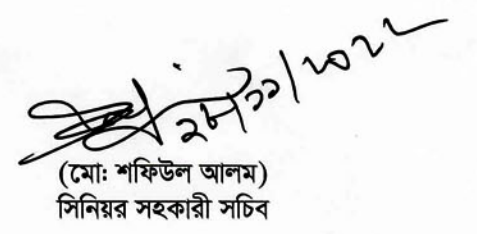 ২৮/১১/২০২২
(মো: শফিউল আলম)
সিনিয়র সহকারী সচিব